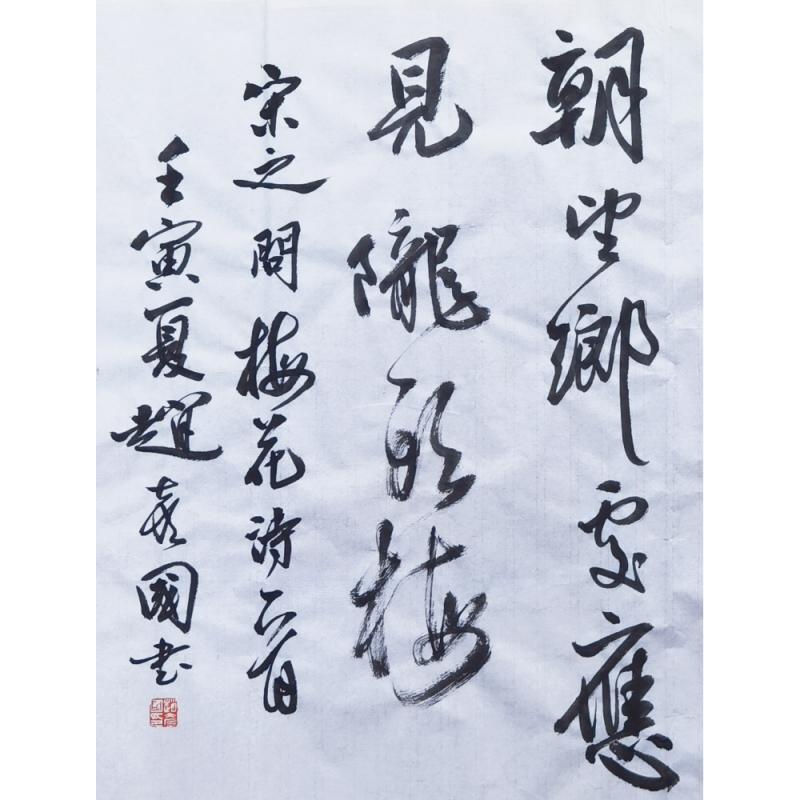 朝望鄉處應
見隴頭梅
宋之問梅花詩首
壬寅夏趙國書